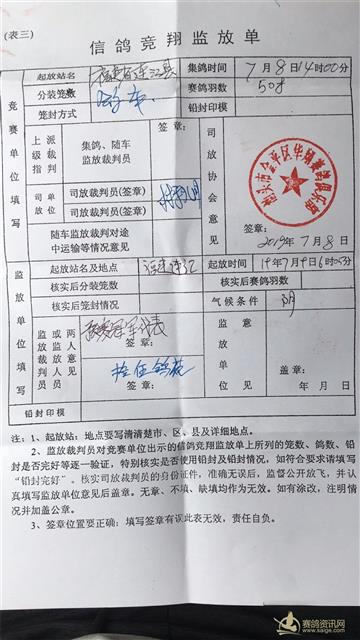 (表三)
信鸽竞翔监放单
竞赛单位填写
起放站名 福建省连江县 集鸽时间 7月8日14时00分
分装笼数 赛鸽羽数 508
笼封方式 铅封印模
上级指派裁判 集鸽、随车监放裁判员 签章:
司放单位 司放裁判员(签章)
司放裁判员(签章)
随车监放裁判对途中运输等情况意见
司放协会意见
签章:
2019年7月8日
监放单位填写
起放站名及地点 福建连江 起放时间 19年7月9日6时05分
核实后分装笼数 核实后赛鸽羽数
核实后笼封情况 气候条件 阴
监放裁判员或两人意见 签章:
签章:
监放单位意见
盖章:
年 月 日
铅封印模
注:1、起放站:地点要写清清楚市、区、县及详细地点。
2、监放裁判员对竞赛单位出示的信鸽竞翔监放单上所列的笼数、鸽数、铅
封是否完好等逐一验证,特别核实是否使用铅封及铅封情况,如符合要求请填写
“铅封完好”。核实司放裁判员的身份证件,准确无误后,监督公开放飞,并认
真填写监放单位意见后盖章。无章、不填、缺填均作为无效。如有涂改,注明情
况并加盖公章。
3、签章位置要正确:填写签章有误此表无效,责任自负。
赛鸽资讯网
www.saige.com